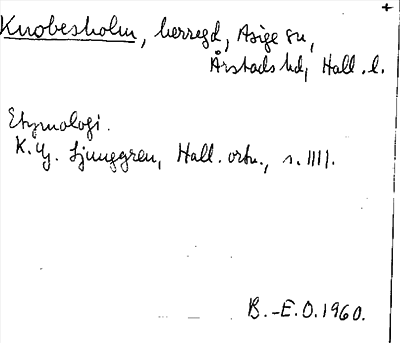 +
Knobesholm, herregd, Asige sn,
Årstads hd, Hall. l.
Etymologi.
K. G. Ljunggren, Hall. ortn., s. 1111.
B.-E.O. 1960.